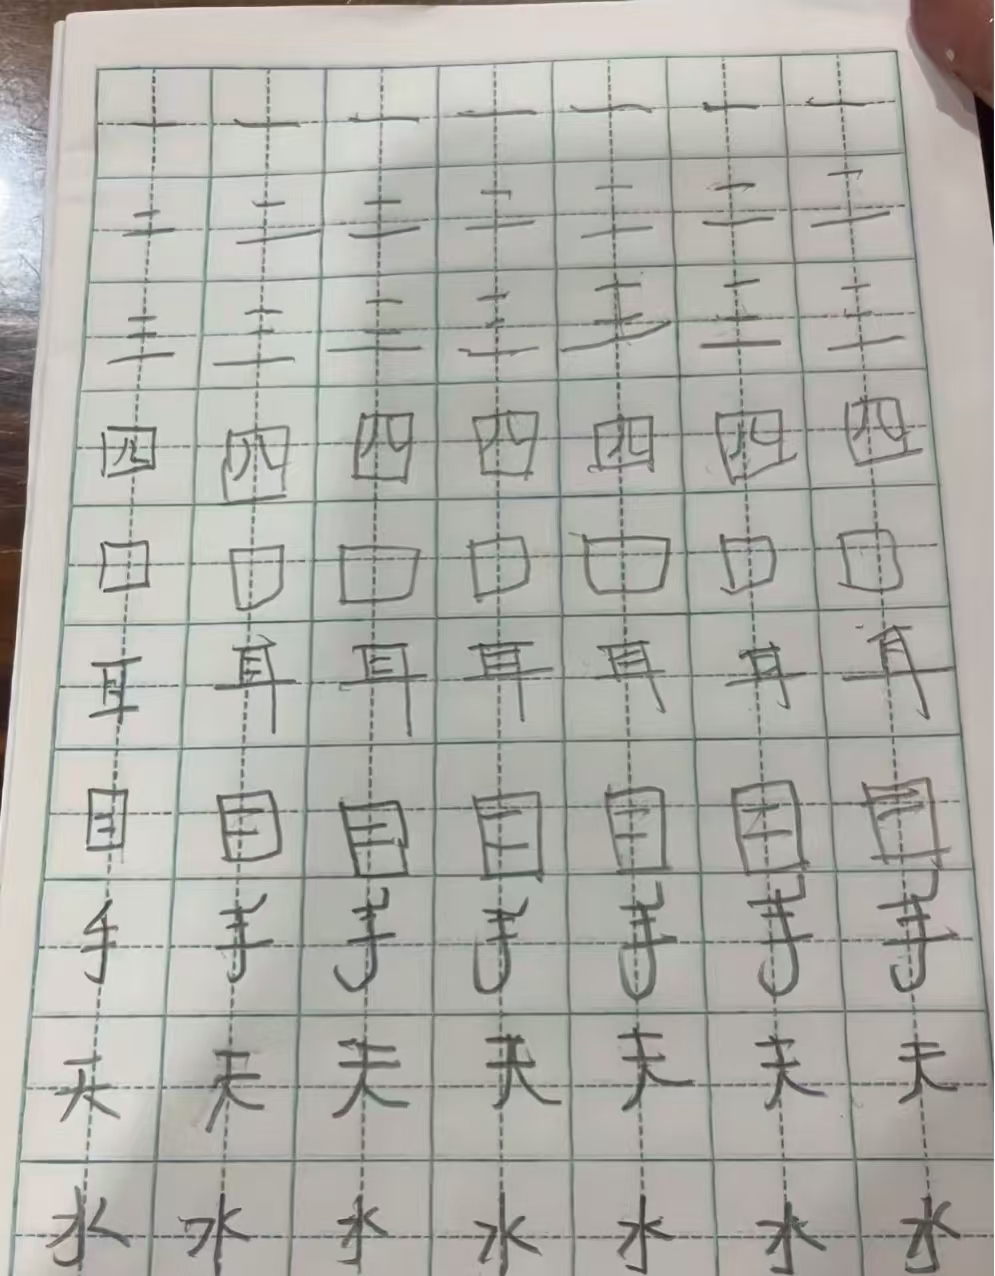 一一一一一一一
二二二二二二二
三三三三三三三
四四四四四四四
口口口口口口口
耳耳耳耳耳耳耳
目目目目目目目
手手手手手手手
天天天天天天天
水水水水水水水